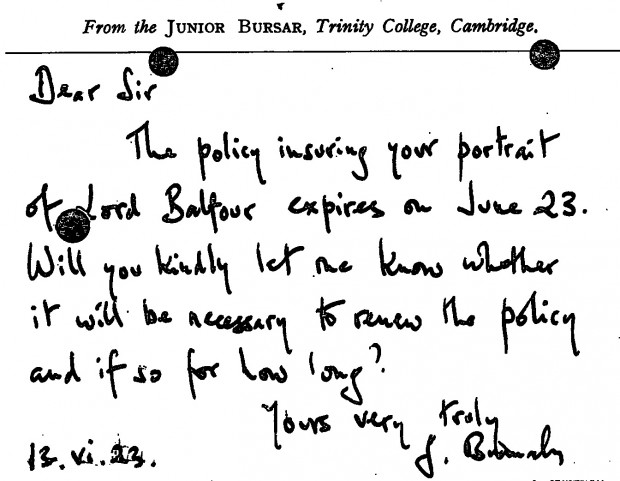 From the JUNIOR BURSAR, Trinity College, Cambridge.
Dear Sir
The policy insuring your portrait
of Lord Balfour expires on June 23.
Will you kindly let me know whether
it will be necessary to renew the policy
and if so for how long?
Yours very truly
13.vi.23.